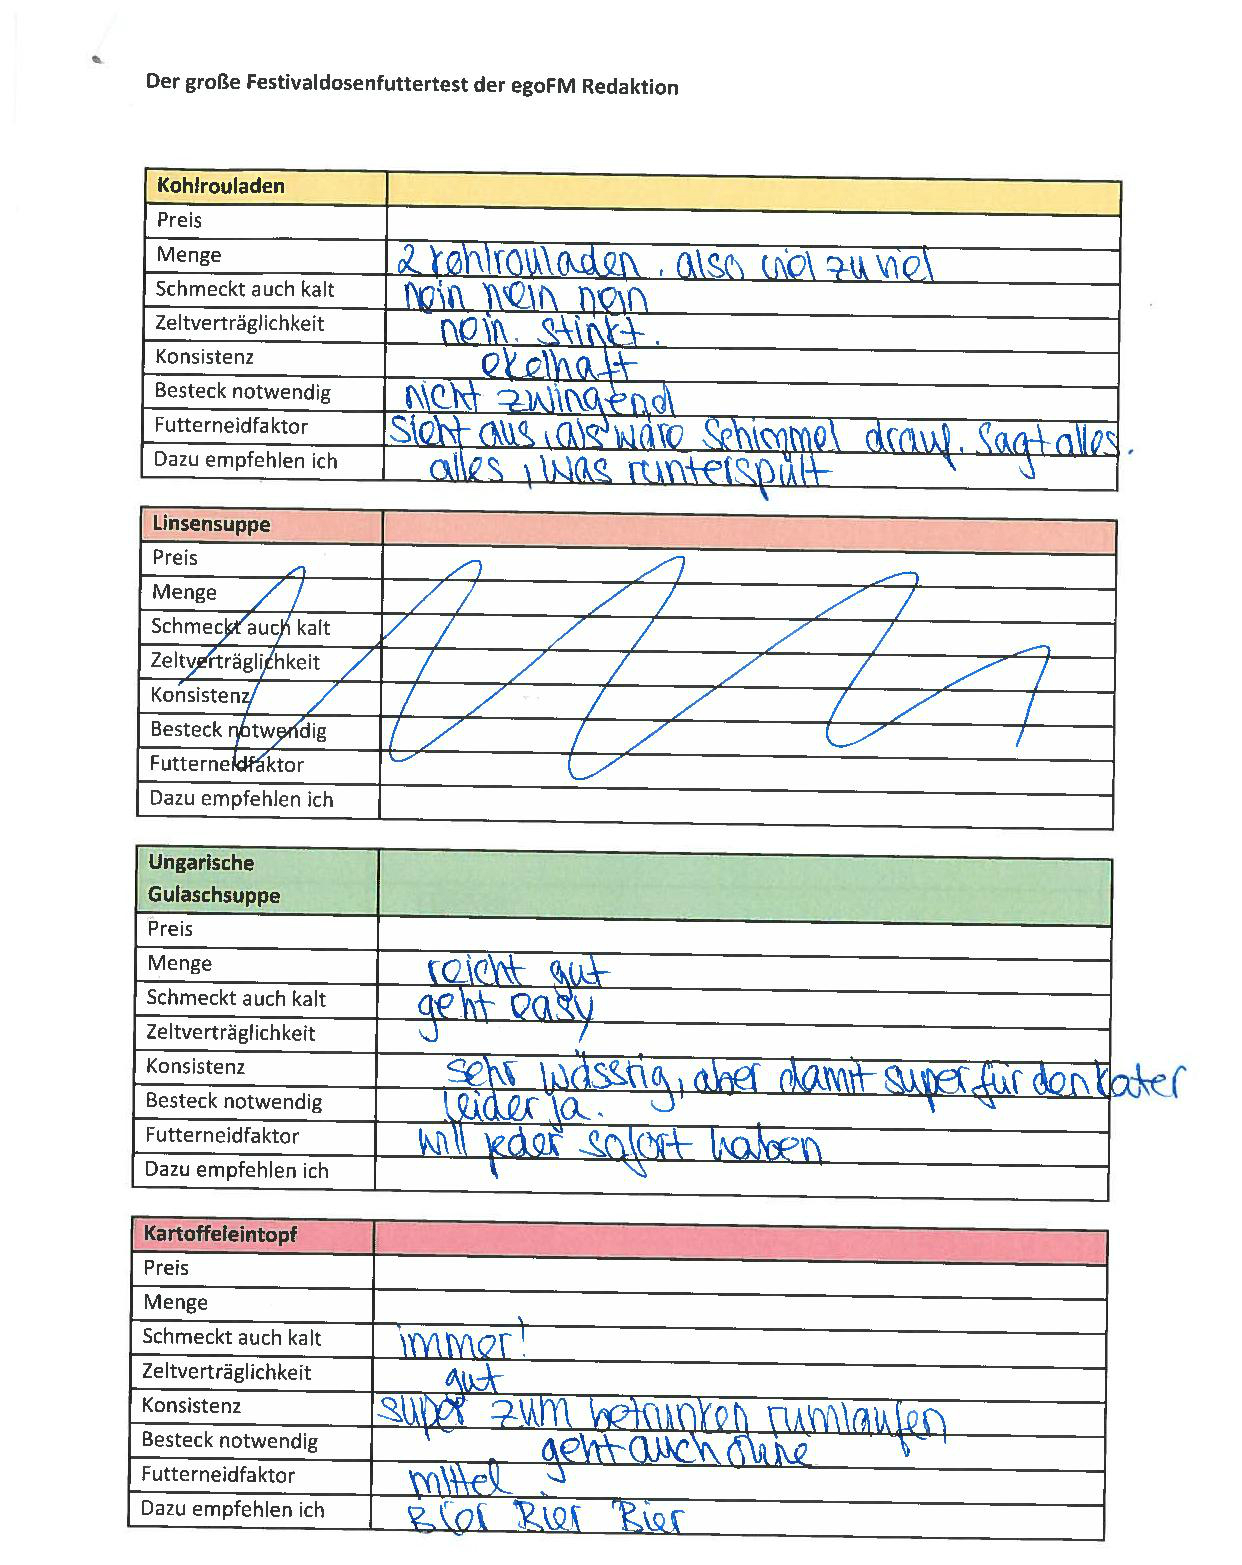 Der große Festivaldosenfuttertest der egoFM Redaktion
Kohlrouladen
Preis
Menge 2 Kohlrouladen, also viel zu viel
Schmeckt auch kalt nein nein nein
Zeltverträglichkeit nein. stinkt.
Konsistenz ekelhaft
Besteck notwendig nicht zwingend
Futterneidfaktor Sieht aus, als wäre Schimmel drauf. Sagt alles.
Dazu empfehlen ich alles, was runterspült
Linsensuppe
Preis
Menge
Schmeckt auch kalt
Zeltverträglichkeit
Konsistenz
Besteck notwendig
Futterneidfaktor
Dazu empfehlen ich
Ungarische
Gulaschsuppe
Preis
Menge reicht gut
Schmeckt auch kalt geht easy
Zeltverträglichkeit
Konsistenz sehr wässrig, aber damit super für den Kater
Besteck notwendig leider ja.
Futterneidfaktor will jeder sofort haben
Dazu empfehlen ich
Kartoffeleintopf
Preis
Menge
Schmeckt auch kalt immer!
Zeltverträglichkeit gut
Konsistenz super zum betrunken rumlaufen
Besteck notwendig geht auch ohne
Futterneidfaktor mittel
Dazu empfehlen ich Bier Bier Bier